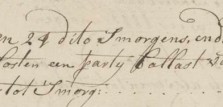 en 29 dito Smorgens, end
Costen een party ballast
tot Smorg. . . . . . . . .